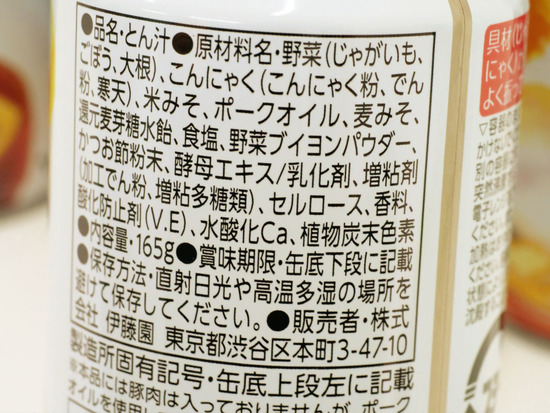 ●品名・とん汁●原材料名・野菜(じゃがいも、
ごぼう、大根)、こんにゃく(こんにゃく粉、でん
粉、寒天)、米みそ、ポークオイル、麦みそ、
還元麦芽糖水飴、食塩、野菜ブイヨンパウダー、
かつお節粉末、酵母エキス/乳化剤、増粘剤
(加工でん粉、増粘多糖類)、セルロース、香料、
酸化防止剤(V.E)、水酸化Ca、植物炭末色素
●内容量・165g●賞味期限・缶底下段に記載
●保存方法・直射日光や高温多湿の場所を
避けて保存してください。●販売者・株式
会社 伊藤園 東京都渋谷区本町3-47-10
製造所固有記号・缶底上段左に記載
※本品には豚肉は入っておりませんが、ポーク
オイルを使用し
具材(じ
にゃく)
よく振っ
▽容器の
かけない
別の容器
突然沸
電子レン